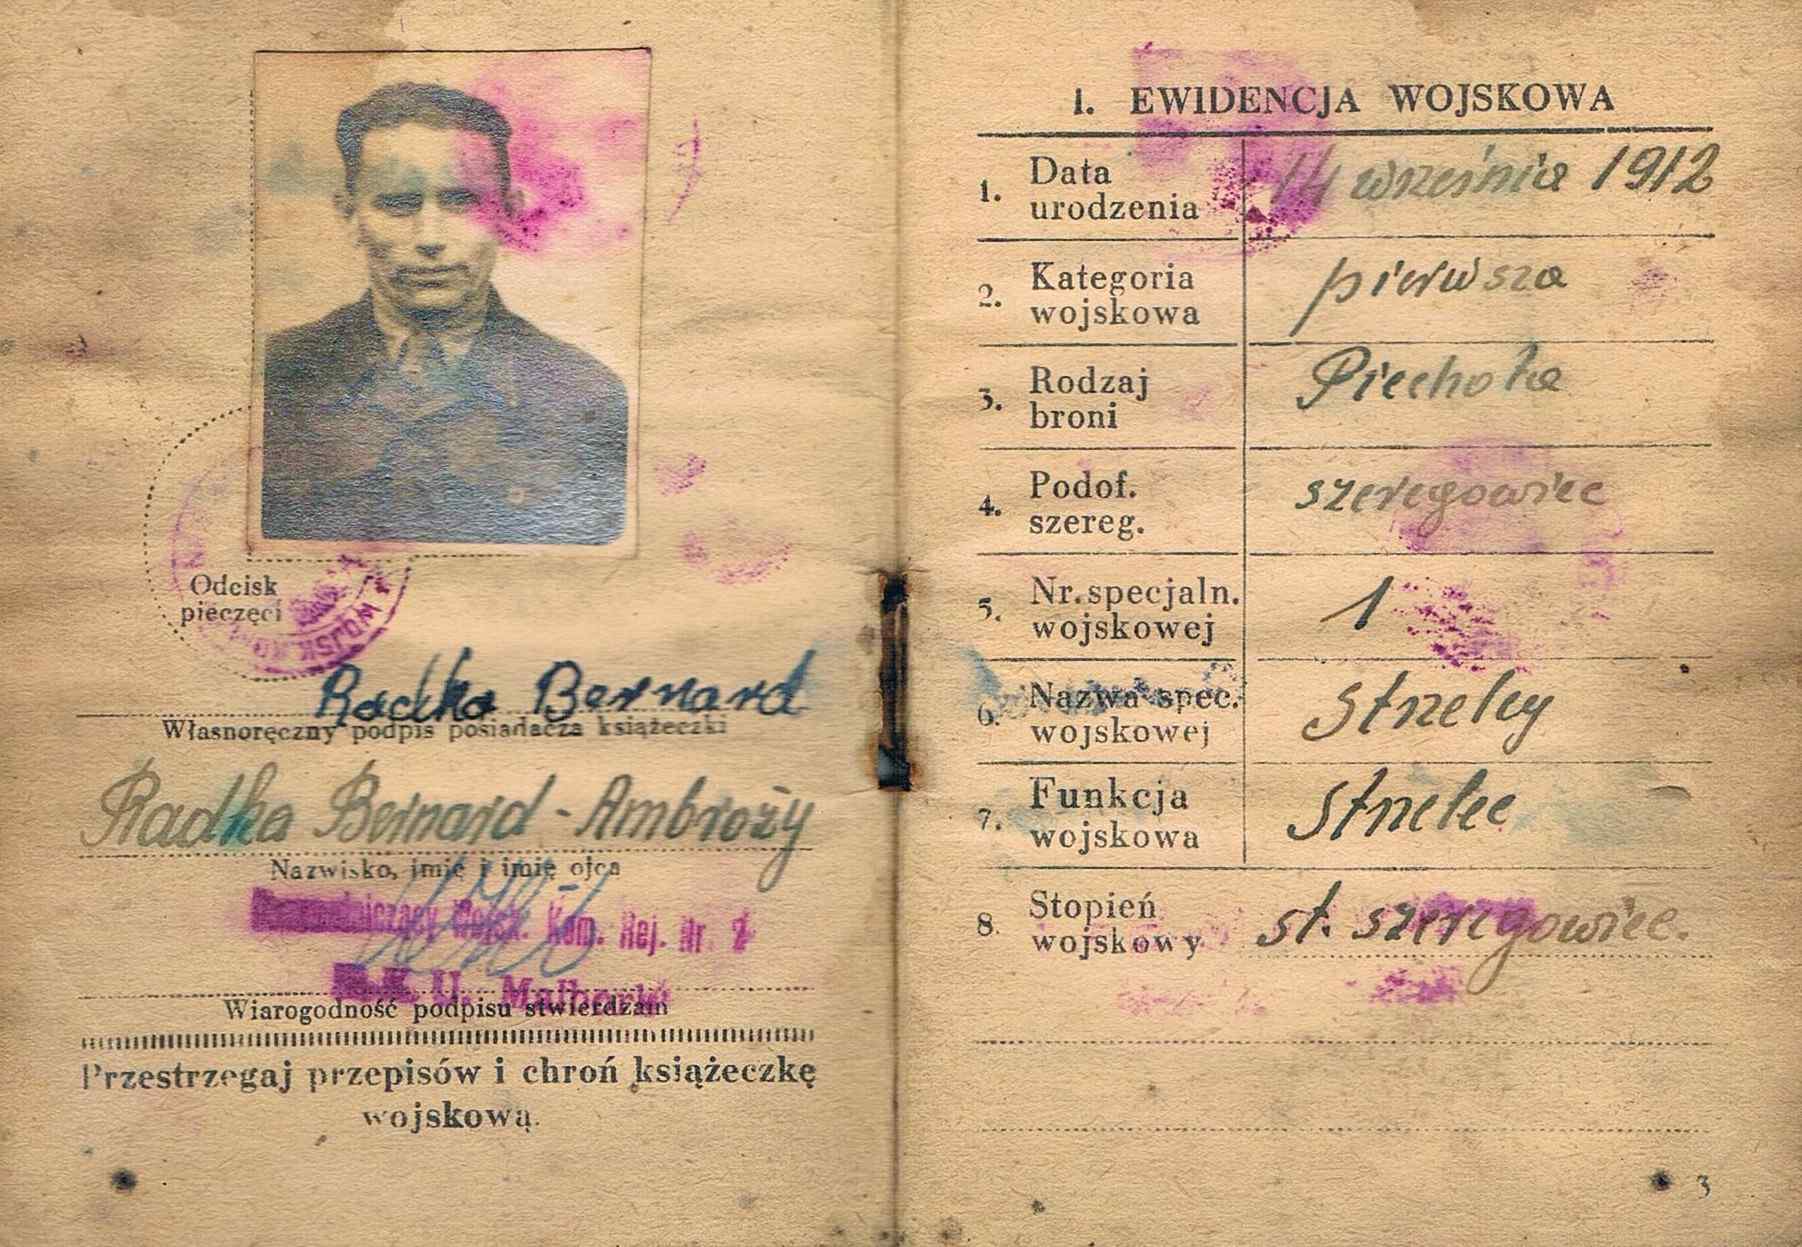 Odcisk
pieczęci
WOJSK
Radka Bernard
Własnoręczny podpis posiadacza książeczki
Radka Bernard - Ambroży
Nazwisko, imię i imię ojca
Wojsk. Kom. Rej. Nr 2
R.K.U. Malbork
Wiarogodność podpisu stwierdzam
Przestrzegaj przepisów i chroń książeczkę
wojskową.
1. EWIDENCJA WOJSKOWA
1. Data urodzenia 14 września 1912
2. Kategoria wojskowa pierwsza
3. Rodzaj broni Piechota
4. Podof. szereg. szeregowiec
5. Nr. specjaln. wojskowej 1
6. Nazwa spec. wojskowej Strzelcy
7. Funkcja wojskowa Strzelec
8. Stopień wojskowy st. szeregowiec.
3